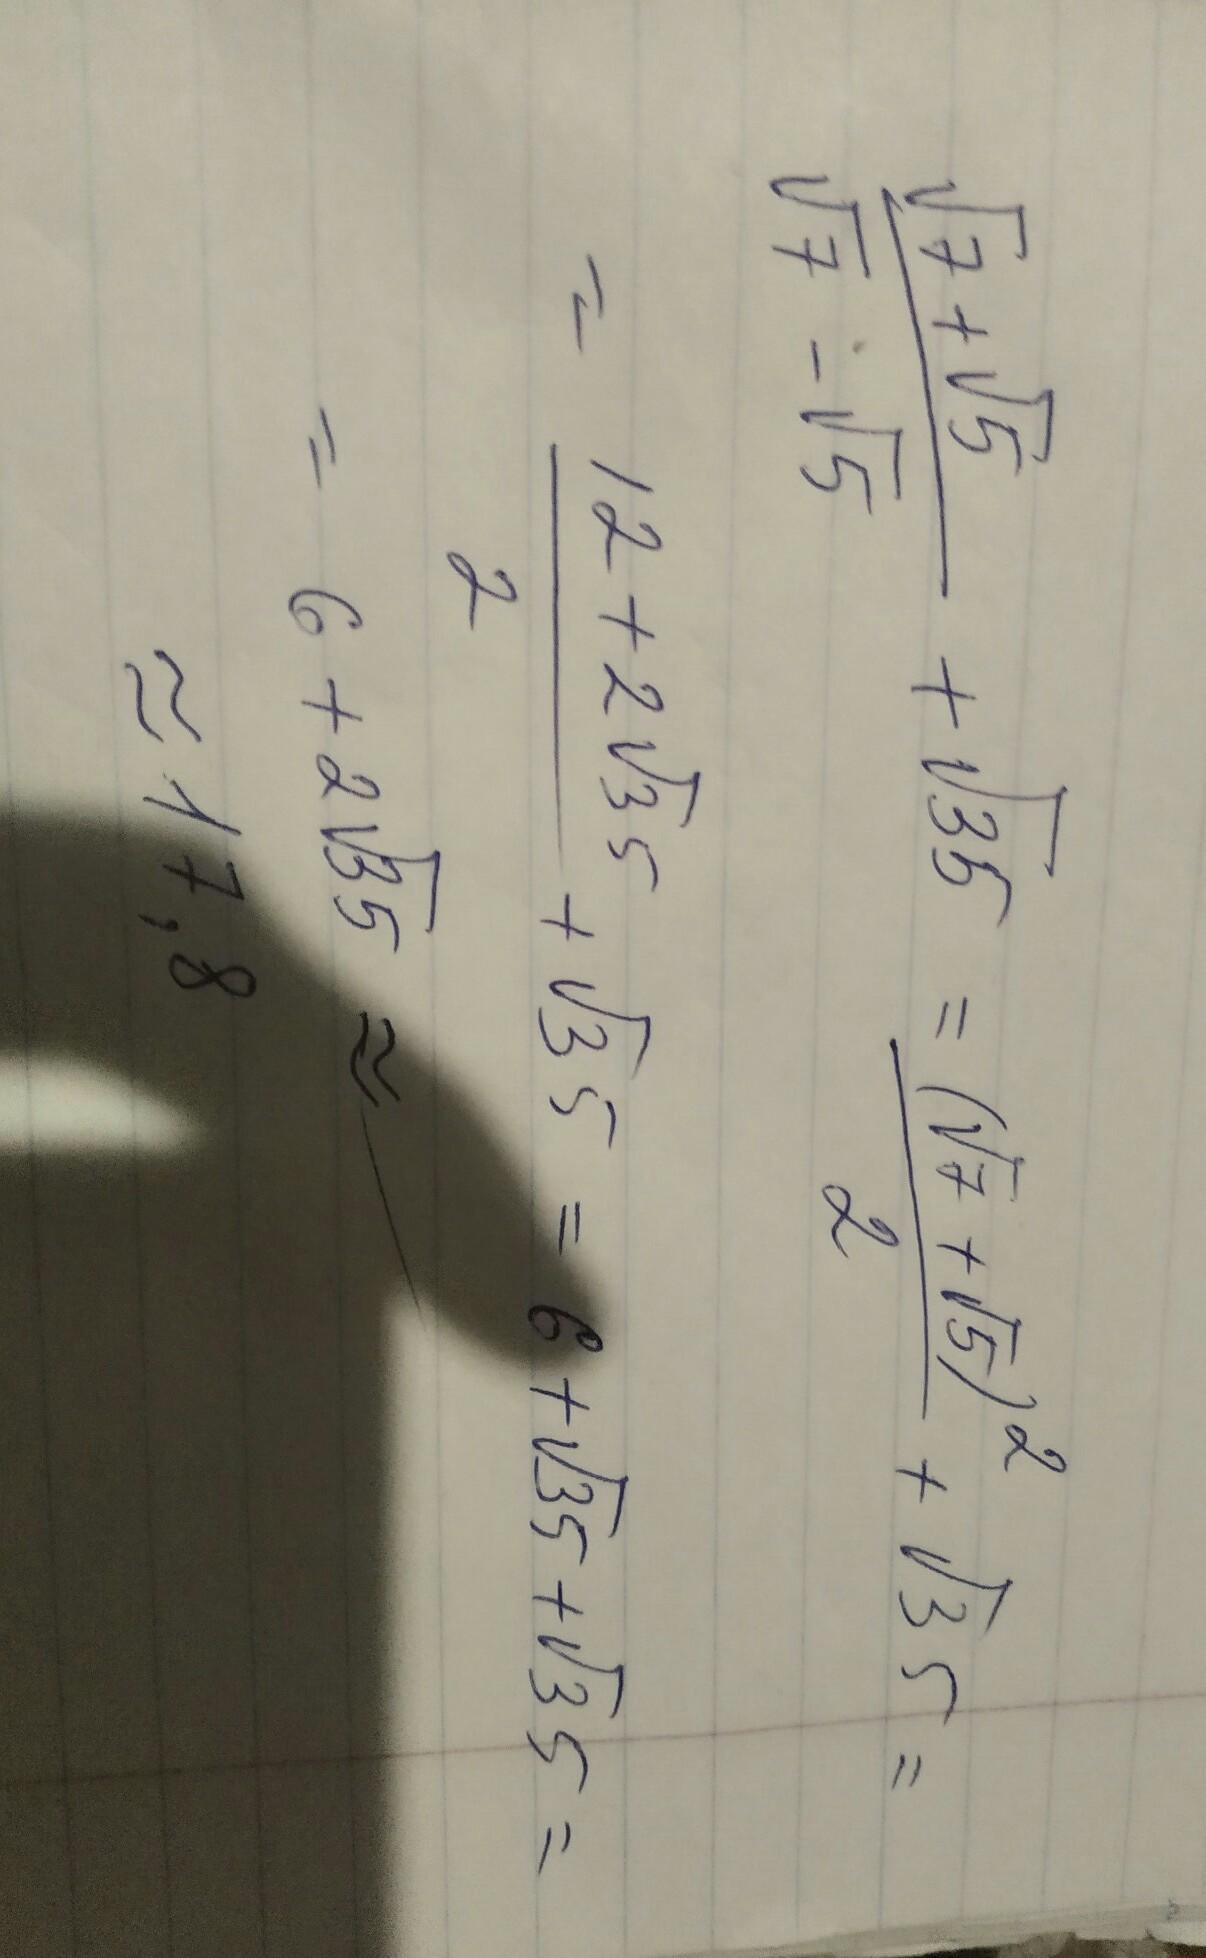 (√7+√5)/(√7-√5) + √35 = (√7+√5)²/2 + √35 =
= (12+2√35)/2 + √35 = 6+√35+√35 =
= 6+2√35 ≈
≈ 17,8